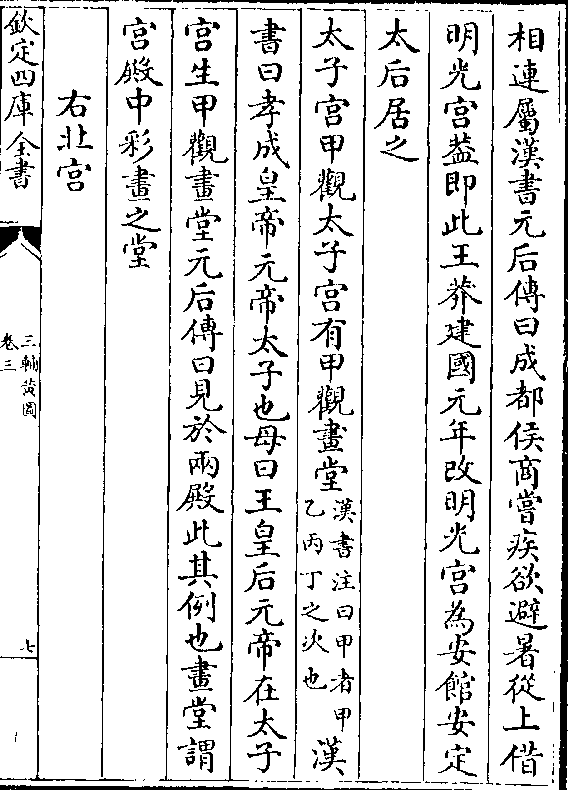 相連屬漢書元后傳曰成都侯商嘗疾欲避暑從上借
明光宫葢即此王莽建國元年改明光宫為安館安定
太后居之
太子宫甲觀太子宫有甲觀畫堂漢書注曰甲者甲乙丙丁之次也漢
書曰孝成皇帝元帝太子也母曰王皇后元帝在太子
宫生甲觀畫堂元后傳曰見於兩殿此其例也畫堂謂
宫殿中彩畫之堂
右北宫
欽定四庫全書
三輔黄圖
卷三
七